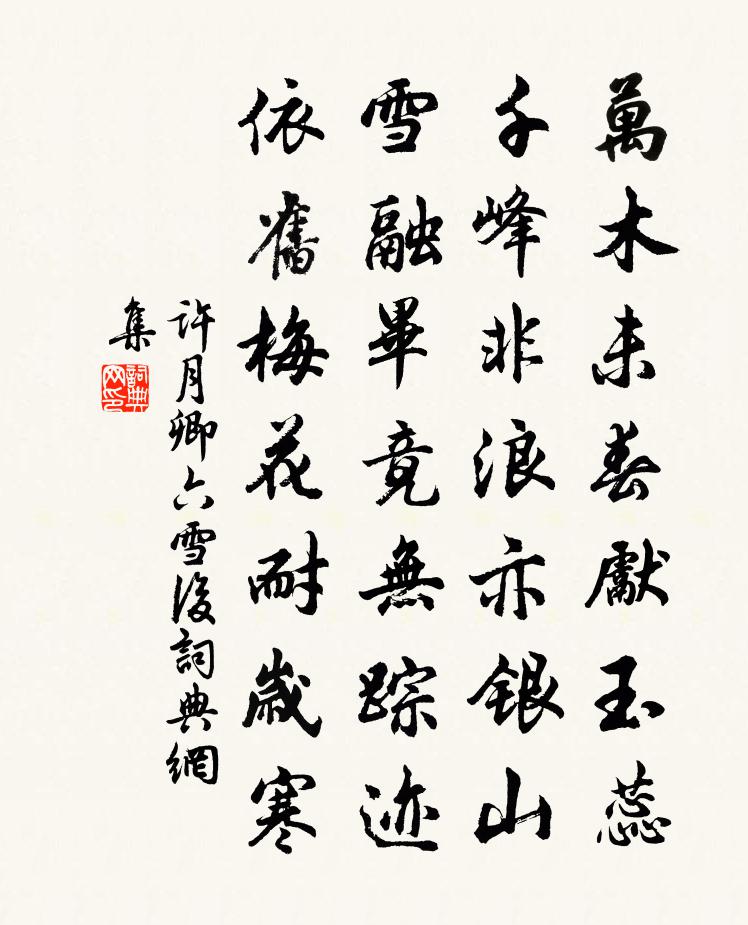 萬木未春獻玉蕊
千峰非浪亦銀山
雪融畢竟無踪迹
依舊梅花耐歲寒
許月卿六雪後詞典網
集
詞典
网印